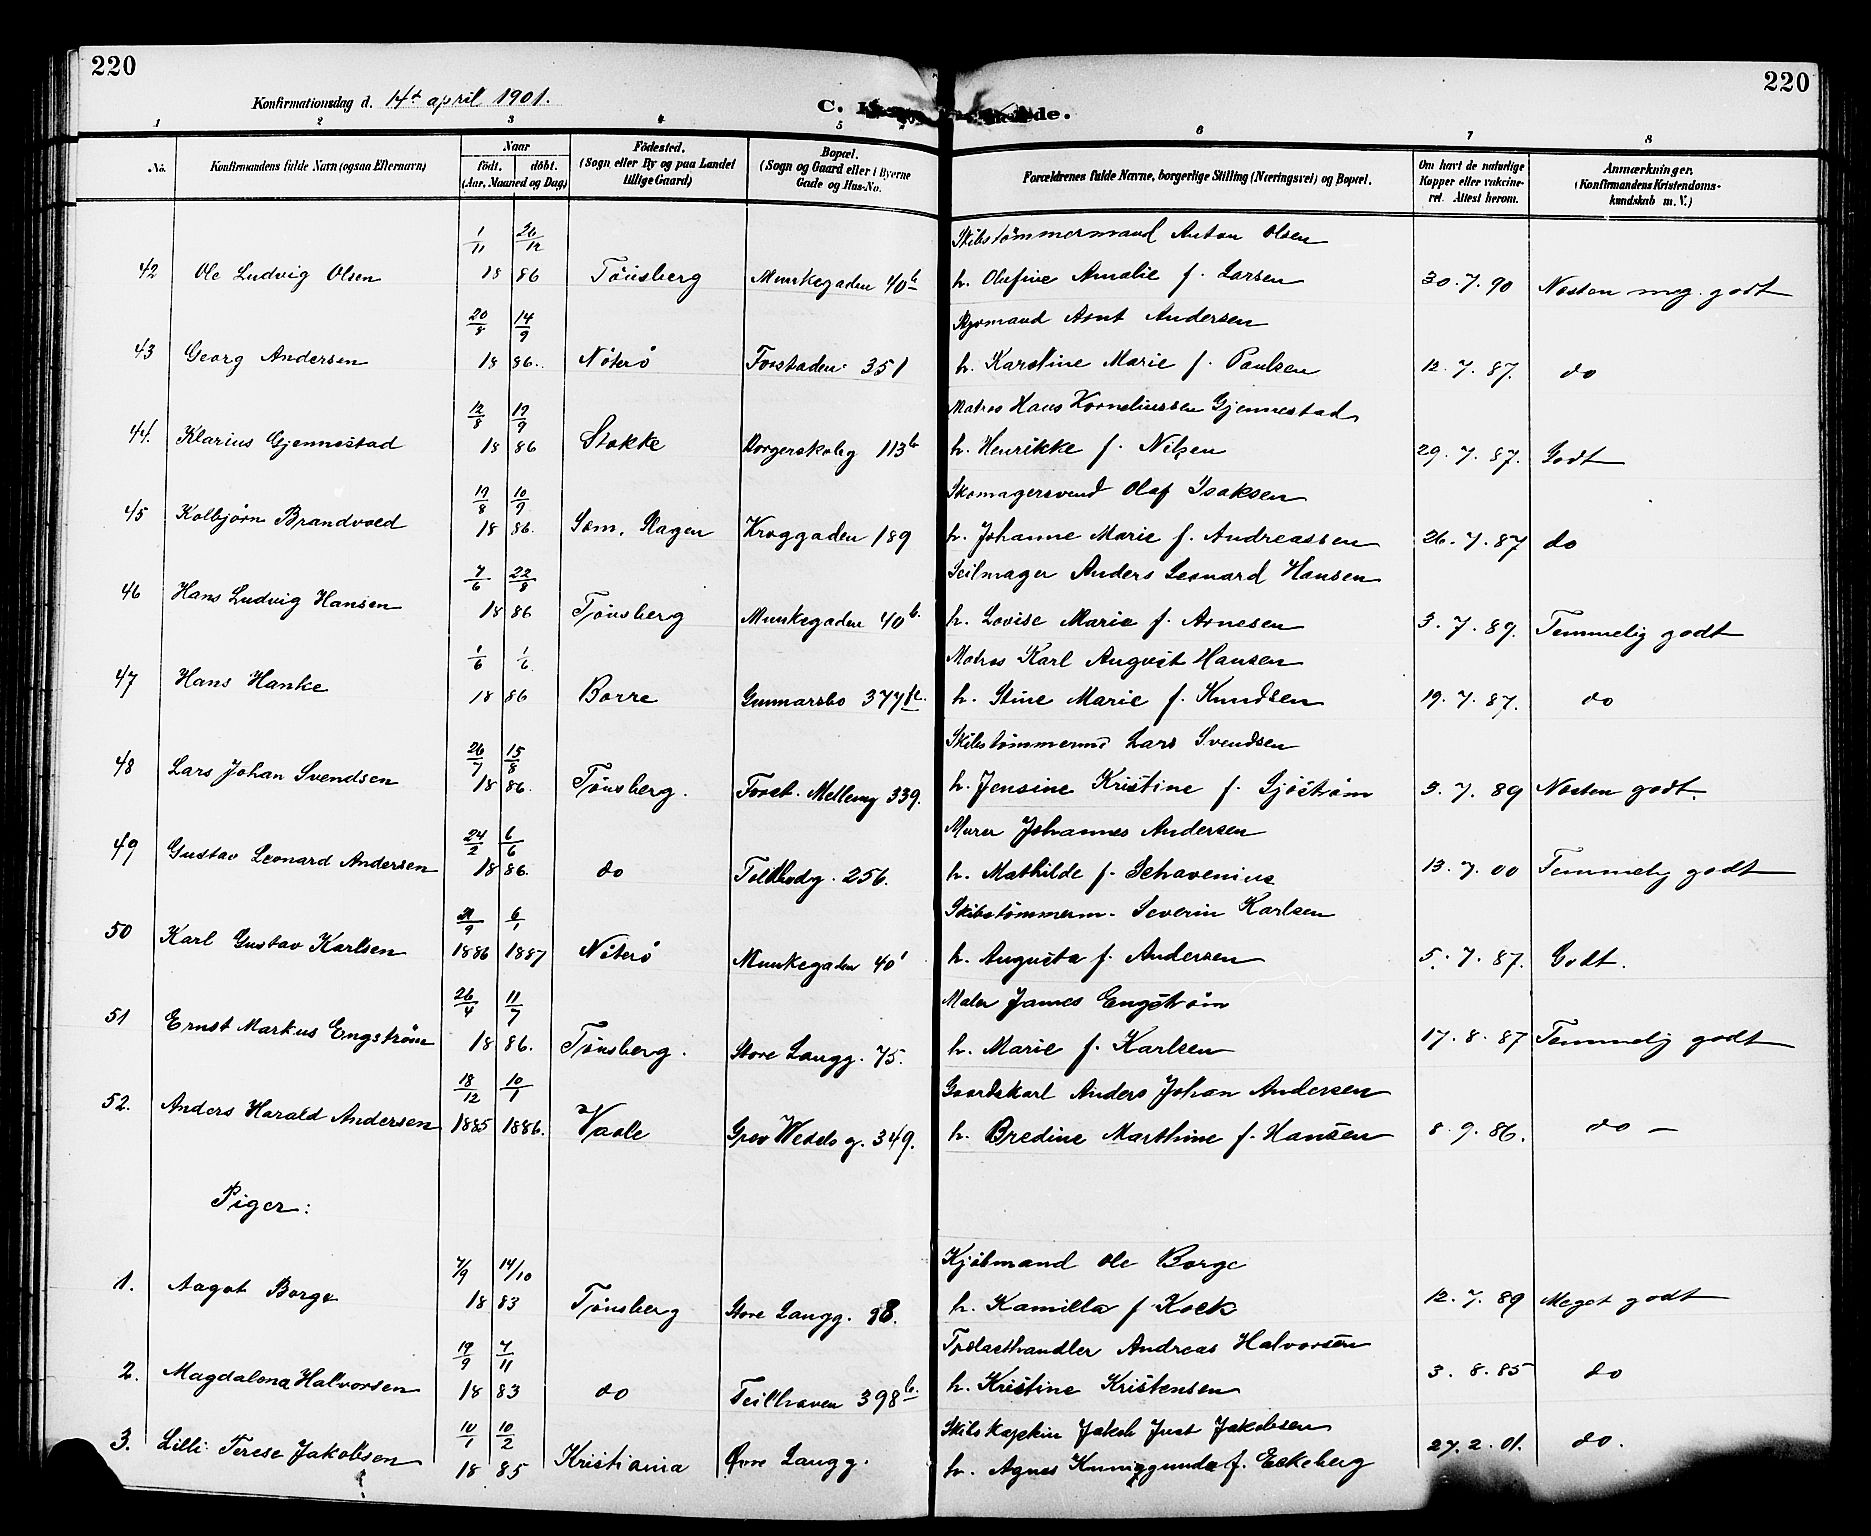 220
220
Konfirmationsdag d. 14de april 1901.
C. de.
1 2 3 4 5 6 7 8
No. Konfirmandens fulde Navn (ogsaa Efternavn) Naar født. døbt. (Aar, Maaned og Dag) Fødested. (Sogn eller By og paa Landet tillige Gaard) Bopæl. (Sogn og Gaard eller i Byerne Gade og Hus-No. Forældrenes fulde Navne, borgerlige Stilling (Næringsvei) og Bopæl. Om havt de naturlige Kopper eller vakcineret. Attest herom. Anmærkninger. (Konfirmandens Kristendomskundskab m. V.)
1/11 26/12 Skibstømmermand Anton Olsen
42 Ole Ludvig Olsen 18 86 Tønsberg Munkegaden 40b h. Olufine Amalie f. Larsen 30.7.90 Næsten meg. godt
20/8 14/9 Styrmand Arnt Andersen
43 Georg Andersen 18 86. Nøterø Forstaden 351 h. Karstine Marie f. Paulsen 12.7.87. do
12/8 19/9 Matros Hans Korneliussen Gjennestad
44. Klarius Gjennestad 18 86 Stokke Borgerskoleg 113b h. Henrikke f. Nilsen 29.7.87. Godt
19/8 10/9 Skomagersvend Olaf Isaksen
45 Kolbjørn Brandvold 18 86. Sem, Slagen Kroggaden 189 h. Johanne Marie f. Andreassen 26.7.87 do
7/6 22/8 Seilmager Anders Leonard Hansen
46 Hans Ludvig Hansen 18 86 Tønsberg Munkegaden 40b. h. Lovise Marie f. Arnesen 3.7.89. Temmelig godt
1/6 1/6 Matros Karl August Hansen
47 Hans Hanke 18 86 Borre Gunnarsbo 377 h. Stine Marie f. Knudsen 19.7.87. do
26/7 15/8 Skibstømmermd Lars Svendsen
48 Lars Johan Svendsen 18 86. Tønsberg. Forst. Mellemg 339. h. Jensine Kristine f. Sjøstrøm 3.7.89 Næsten godt.
24/2 6/6 Murer Johannes Andersen
49 Gustav Leonard Andersen 18 86. do Toldbodg. 256. h. Mathilde f. Schavenius 13.7.00 Temmelig godt
6/1 Skibstømmerm. Severin Karlsen
50 Karl Gustav Karlsen 1886 1887 Nøterø Munkegaden 40 h. Augusta f. Andersen 5.7.87. Godt.
26/4 11/7 Maler James Engstrøm
51 Ernst Markus Engstrøm 18 86. Tønsberg. Store Langg. 75. h. Marie f. Karlsen 17.8.87 Temmelig godt
18/12 10/1 Gaardskarl Anders Johan Andersen
52. Anders Harald Andersen 1885 1886. Vaale Grev Wedels g. 349. h. Bredine Marthine f. Hansen 8.9.86. do —
Piger:
7/9 14/10 Kjøbmand Ole Borge
1. Aagot Borge 18 83 Tønsberg Store Langg. h. Kamilla f Kock 12.7.89 Meget godt
19/9 7/11 Trælasthandler Andreas Halvorsen
2. Magdalena Halvorsen 18 83 do Teilhaven 398b. h. Kristine Kristensen 3.8.85 do
10/1 10/2 Skibskaptein Jakob Just Jakobsen
3. Lilli Terese Jakobsen 18 85 Kristiania Øvre Langg. h. Agnes Kunniggunda f. Eckeberg 27.2.01. do.